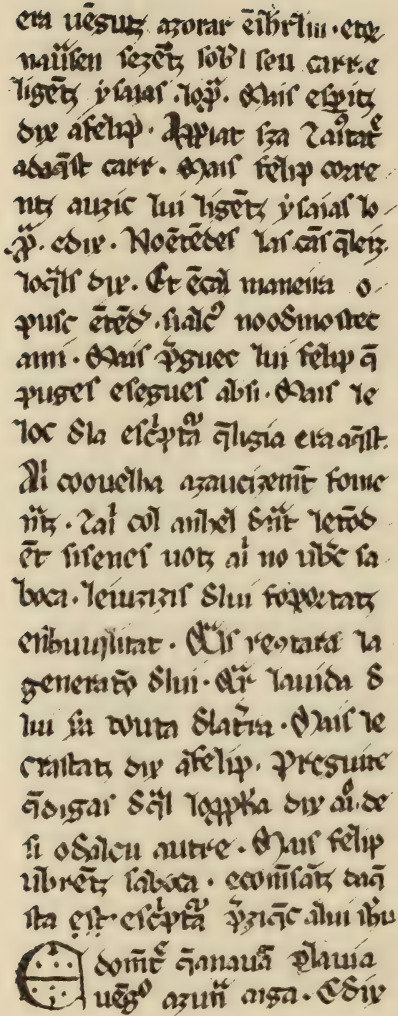 era uēgutz azorar ēihrl̄m · e toͬ
naūsen sezētz sob͛l seu carr·e
ligētz ysaias · lop̄͛ · Mais esp̄itz
dix a felip · Ap̄piat tza ⁊aiōstatͤ
ad aq̄st carr · Mais felip corre
ntz auzic lui ligētz ysaias lo
p̄͛ · e dix · No ētēdes las cās q̄leiz·
loq̄ls dix · Et ēcal maneira o
pusc ētēdͬ · si alcͧ no o dͥmostrec
ami · Mais p̄guec lui felip q̄
puges e segues absi · Mais le
loc dla esc͛ptᷓa q̄ ligia era aq̄st·
Ai co ouelha azaucizemt̄ fo me
natz · ⁊ ai col anhel dnāt le tōd
ēt si senes uotz ai no ubͥc sa
boca · le iuzizis dlui fo portatz
en humilitat · Qͣis recōtara la
generatiō dlui · Qͣr la uida d
lui fu touta dla tr̄ra · Mais le
crastatz dix a felip · Preguite
q̄ digas dq̄l lo ppħa dix aiͦ · de
si o dalcu autre · Mais felip
ubrētz sa boca · e comēsatz daq̄
sta esc͛ptᷓa p̄ziq̄c a lui ihū
E domt̄ͤ q̄ anauā p la uia
uēgͦ az un̄ aiga · E dix